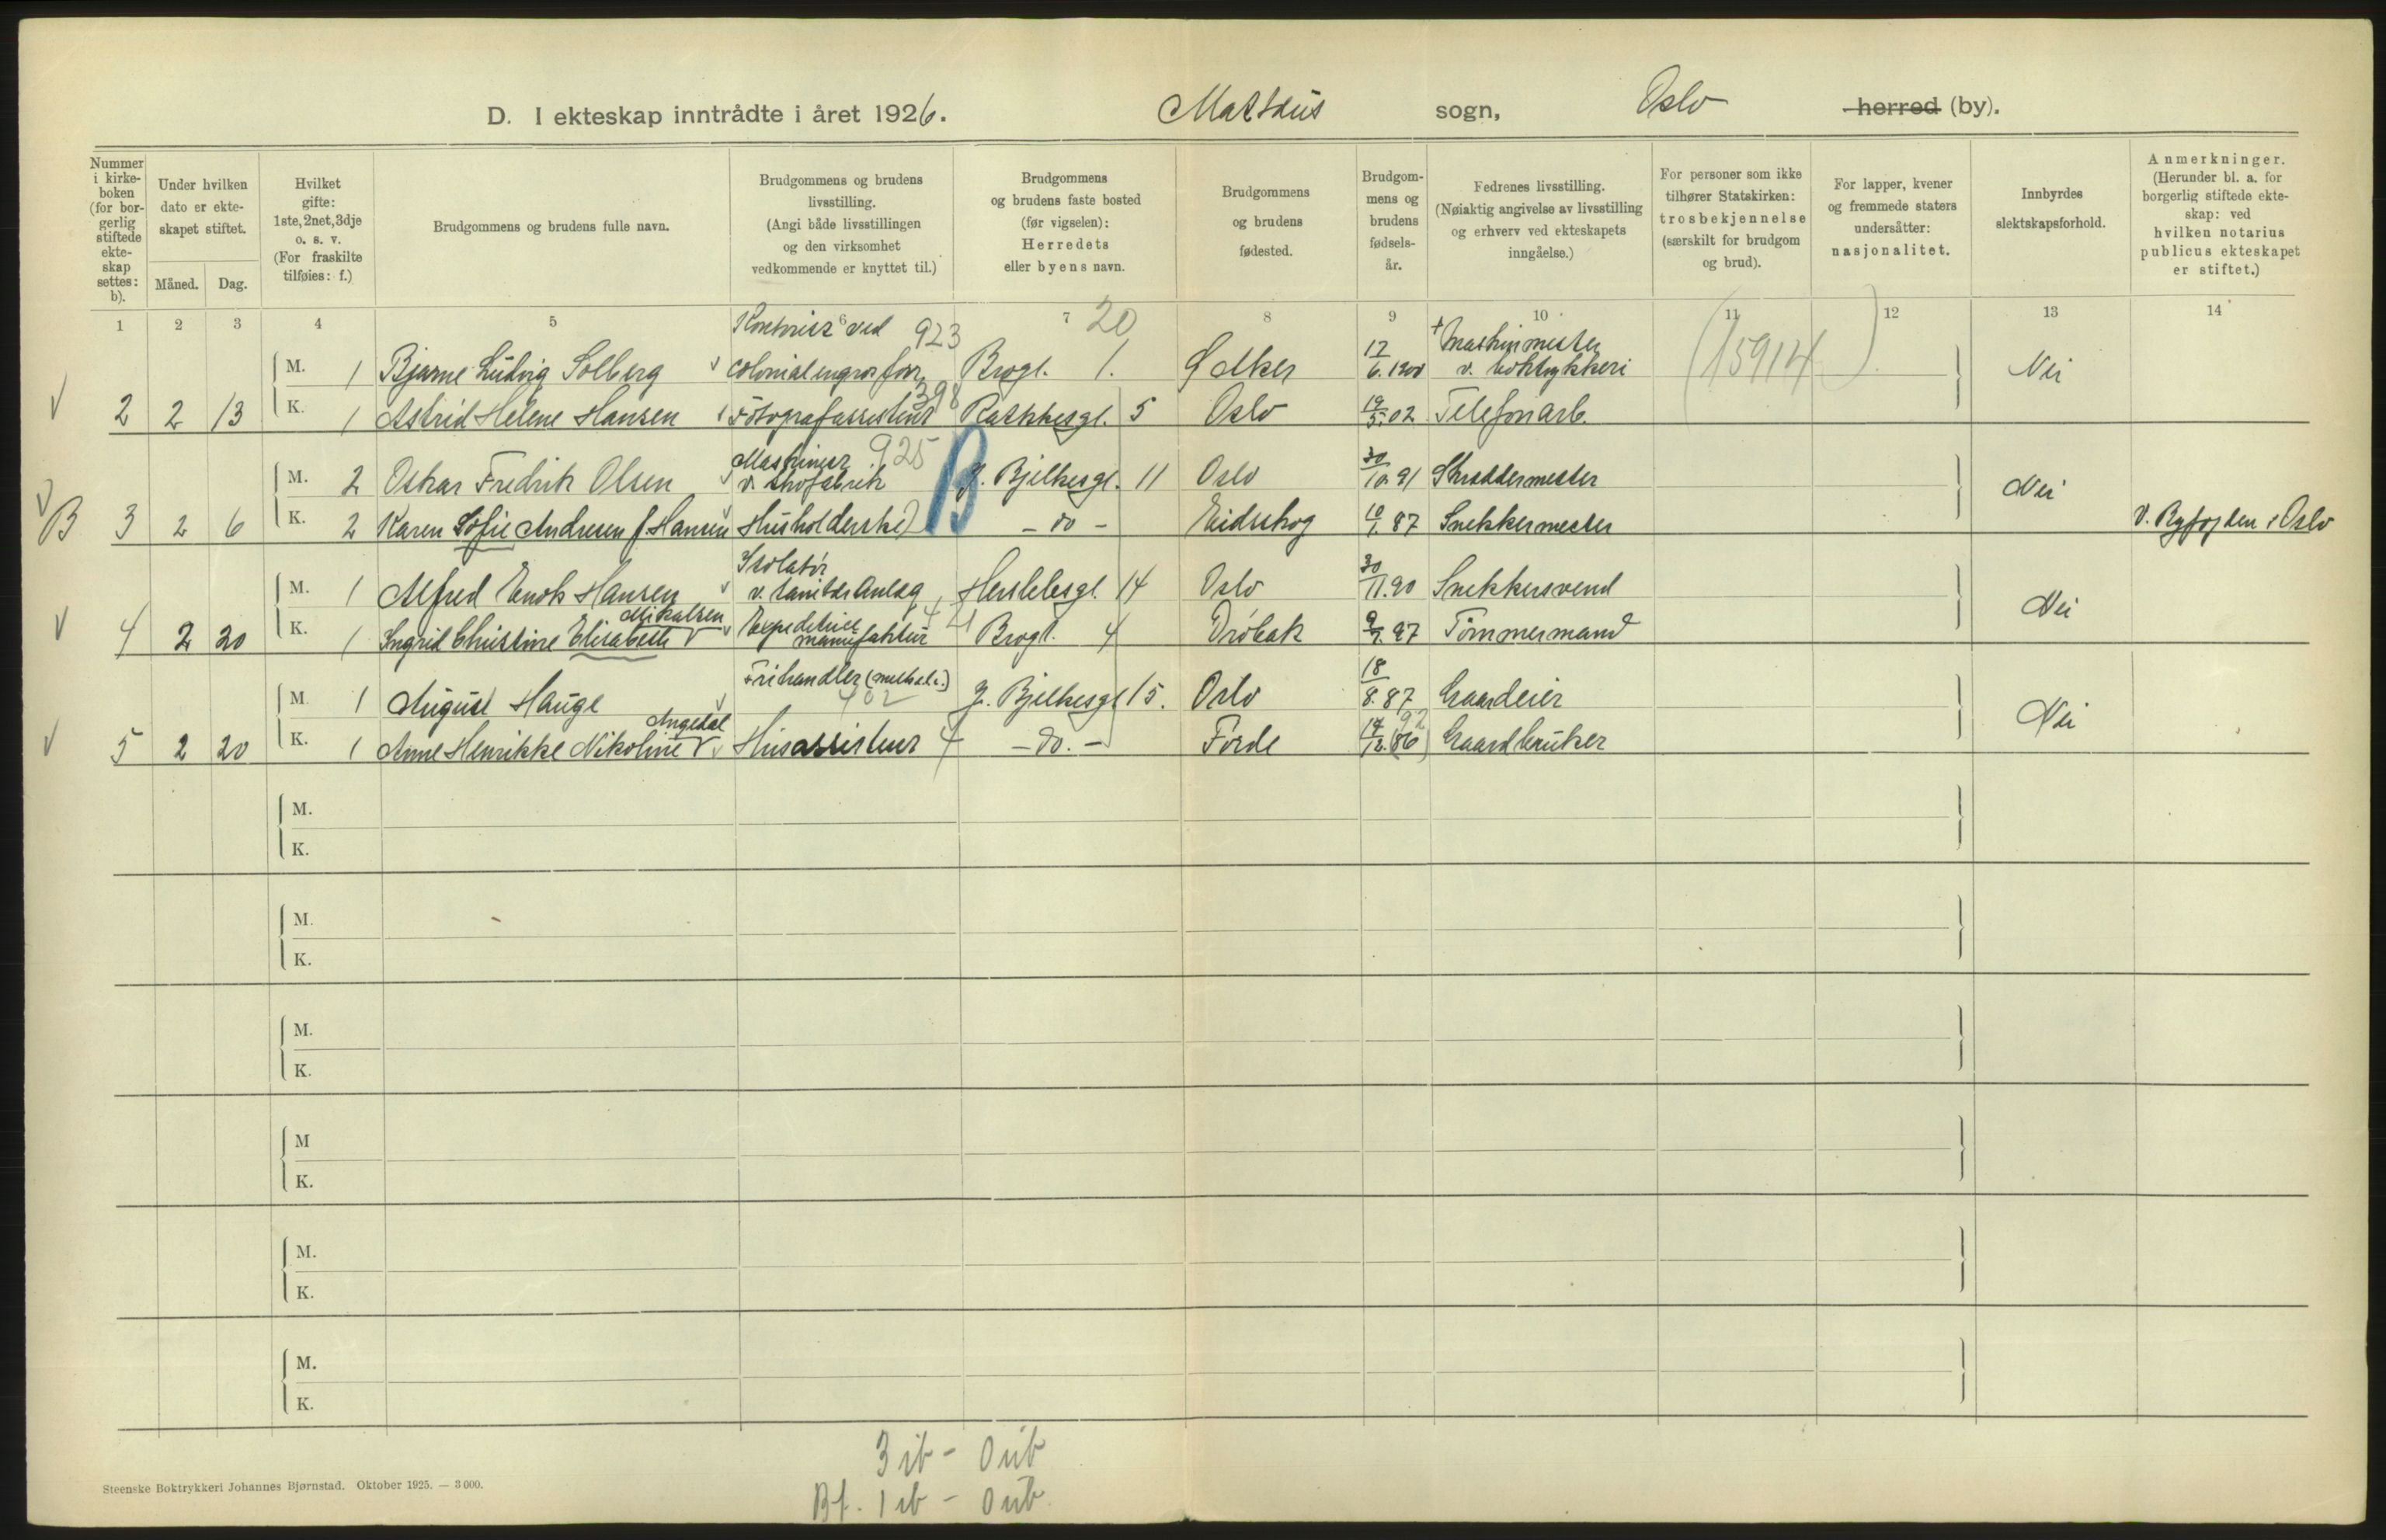 D. I ekteskap inntrådte i året 1926. Matteus sogn, Oslo herred (by).
Nummer i kirkeboken (for borgerlig stiftede ekteskap settes: b).
Under hvilken dato er ekteskapet stiftet.
Måned. Dag.
Hvilket gifte: 1ste, 2net, 3dje o. s. v. (For fraskilte tilføies: f.)
Brudgommens og brudens fulle navn.
Brudgommens og brudens livsstilling. (Angi både livsstillingen og den virksomhet vedkommende er knyttet til.)
Brudgommens og brudens faste bosted (før vigselen): Herredets eller byens navn.
Brudgommens og brudens fødested.
Brudgommens og brudens fødselsår.
Fedrenes livsstilling. (Nøiaktig angivelse av livsstilling og erhverv ved ekteskapets inngåelse.)
For personer som ikke tilhører Statskirken: trosbekjennelse (særskilt for brudgom og brud).
For lapper, kvener og fremmede staters undersåtter: nasjonalitet.
Innbyrdes slektskapsforhold.
Anmerkninger. (Herunder bl. a. for borgerlig stiftede ekteskap: ved hvilken notarius publicus ekteskapet er stiftet.)
1 2 3 4 5 6 7 8 9 10 11 12 13 14
Kontorist ved 923 20 + Maskinmester
M. 1 Bjarne Ludvig Solberg colonialengros forr. Brogt. 1. Ø Aker 17/6. 1900 v. boktrykkeri (15914) Nei
398
2 2 13 K. 1 Astrid Helene Hansen Fotografassistent Rathkesgt. 5 Oslo 19/5. 02 Telefonarb.
Maskinist 925
M. 2 Oskar Fredrik Olsen v. skofabrik B J. Bjelkesgt. 11 Oslo 30/10. 91 Skreddermester Nei
B 3 2 6 K. 2 Karen Sofie Andresen f. Hansen Husholderske - do - Eidskog 10/1. 87 Snekkermester V. Byfogden i Oslo
Isolatør
M. 1 Alfred Enok Hansen v. sanitæranlæg Herslebsgt. 14 Oslo 30/11. 90 Snekkersvend Nei
Mikalsen Expeditrice
4 2 20 K. 1 Ingrid Christine Elisabeth manufaktur Brogt. 4 Drøbak 9/9. 97 Tømmermand
Frihandler (melkeh.)
M. 1 August Hauge 402 J. Bjelkesgt 15. Oslo 18/8. 87 Gaardeier Nei
Angedal 92
5 2 20 K. 1 Anne Henrikke Nikoline Husassistent 4 - do. - Førde 14/12. (86) Gaardbruker
M.
K.
M.
K.
M.
K.
M
K.
M.
K.
M.
K.
3 ib - 0 uib
Bf. 1 ib - 0 uib
Steenske Boktrykkeri Johannes Bjørnstad. Oktober 1925. — 3 000.